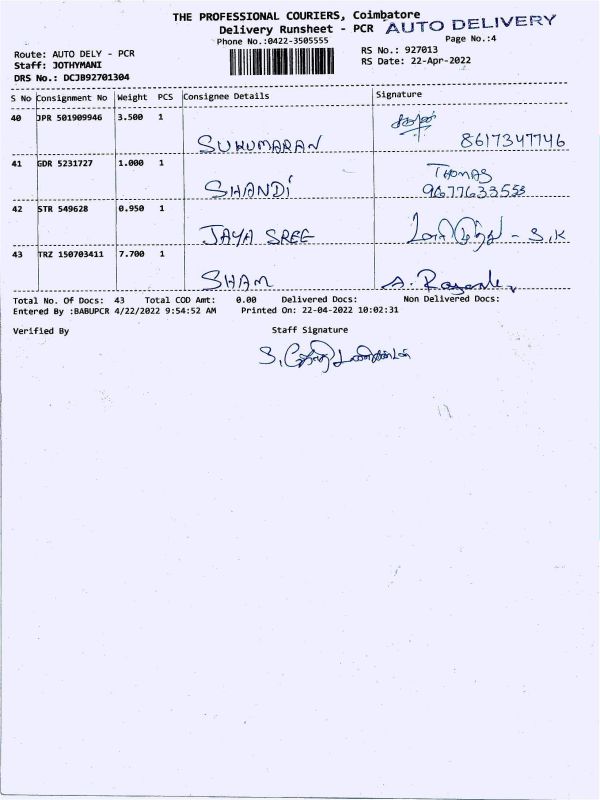 THE PROFESSIONAL COURIERS, Coimbatore
Delivery Runsheet - PCR AUTO DELIVERY
Phone No.:0422-3505555 Page No.:4
Route: AUTO DELY - PCR RS No.: 927013
Staff: JOTHYMANI RS Date: 22-Apr-2022
DRS No.: DCJB92701304
S No Consignment No Weight PCS Consignee Details Signature
40 JPR 501909946 3.500 1
SUKUMARAN 8617347746
41 GDR 5231727 1.000 1 THOMAS
SHANDI 9677633553
42 STR 549628 0.950 1
JAYA SREE - S.K
43 TRZ 150703411 7.700 1
SHAM A.
Total No. Of Docs: 43 Total COD Amt: 0.00 Delivered Docs: Non Delivered Docs:
Entered By :BABUPCR 4/22/2022 9:54:52 AM Printed On: 22-04-2022 10:02:31
Verified By Staff Signature